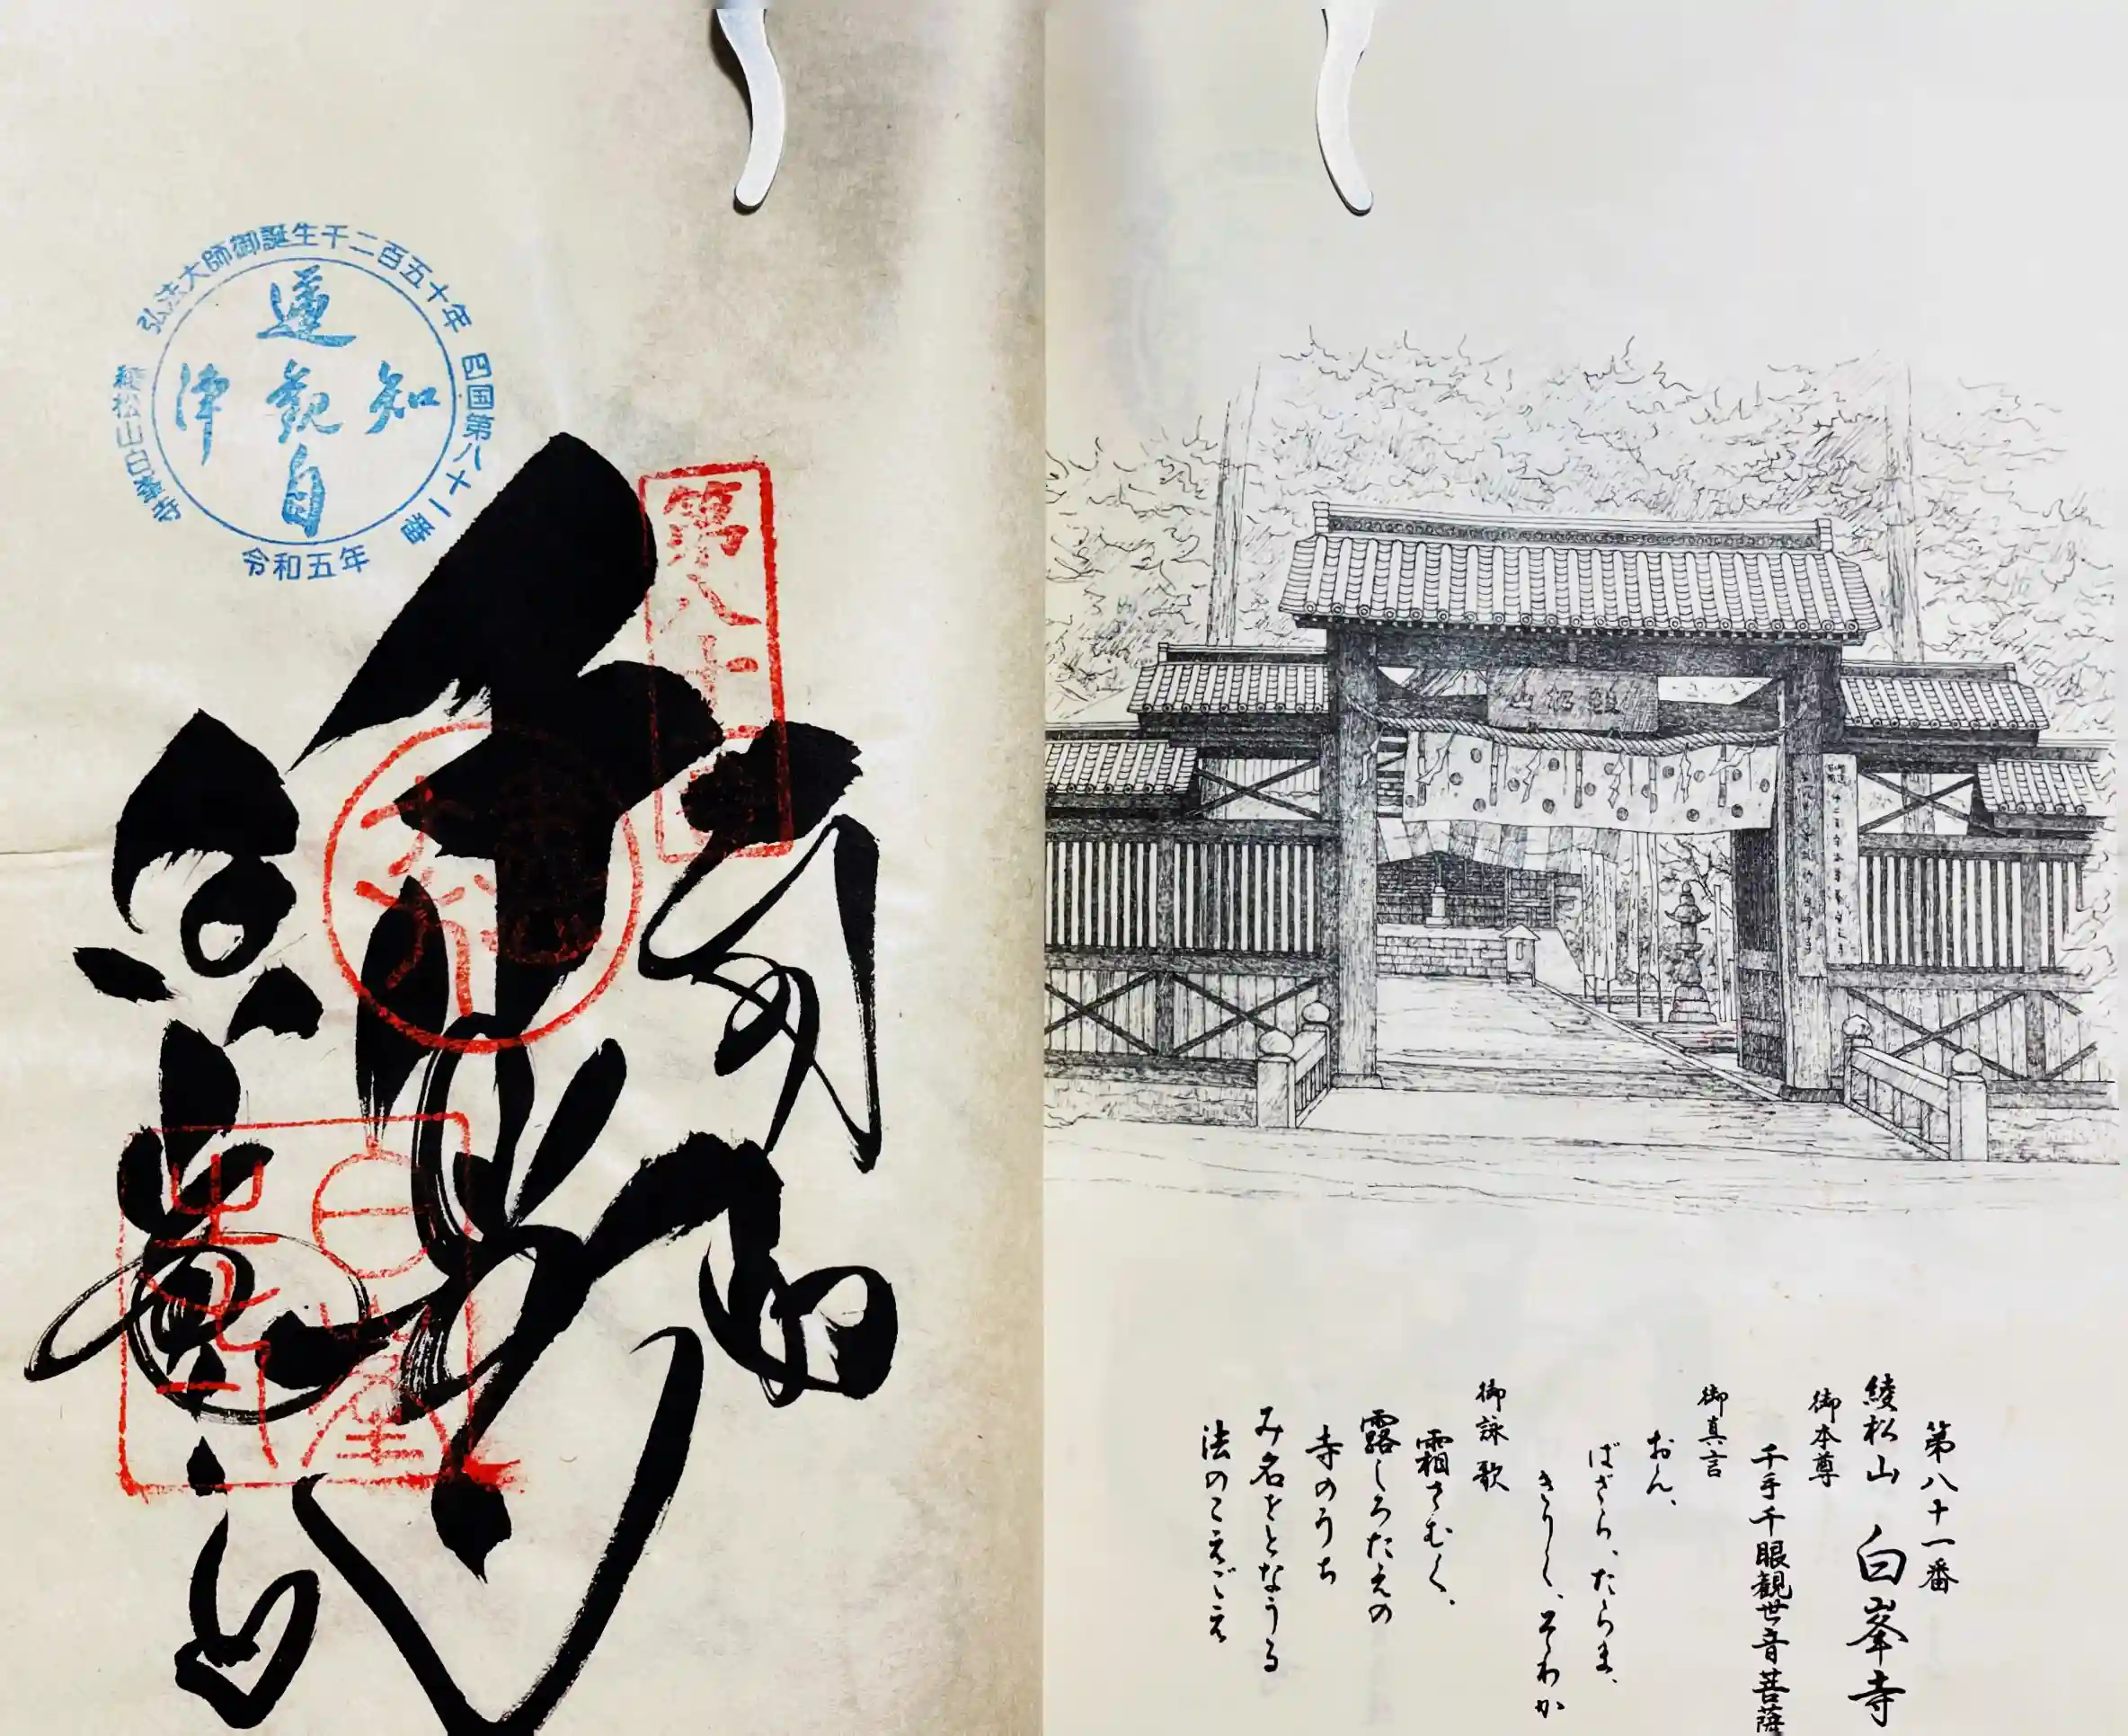 第八十一番
綾松山 白峯寺
御本尊
千手千眼観世音菩薩
御真言
おん、
ばざら、たらま、
きりく、そわか
御詠歌
霜さむく、
露しろたえの
寺のうち
み名をとなうる
法のこえごえ
弘法大師御誕生千二百五十年
四国第八十一番
令和五年
綾松山白峯寺
遍
知
観
津
自
第八十一番
奉納
白峯寺